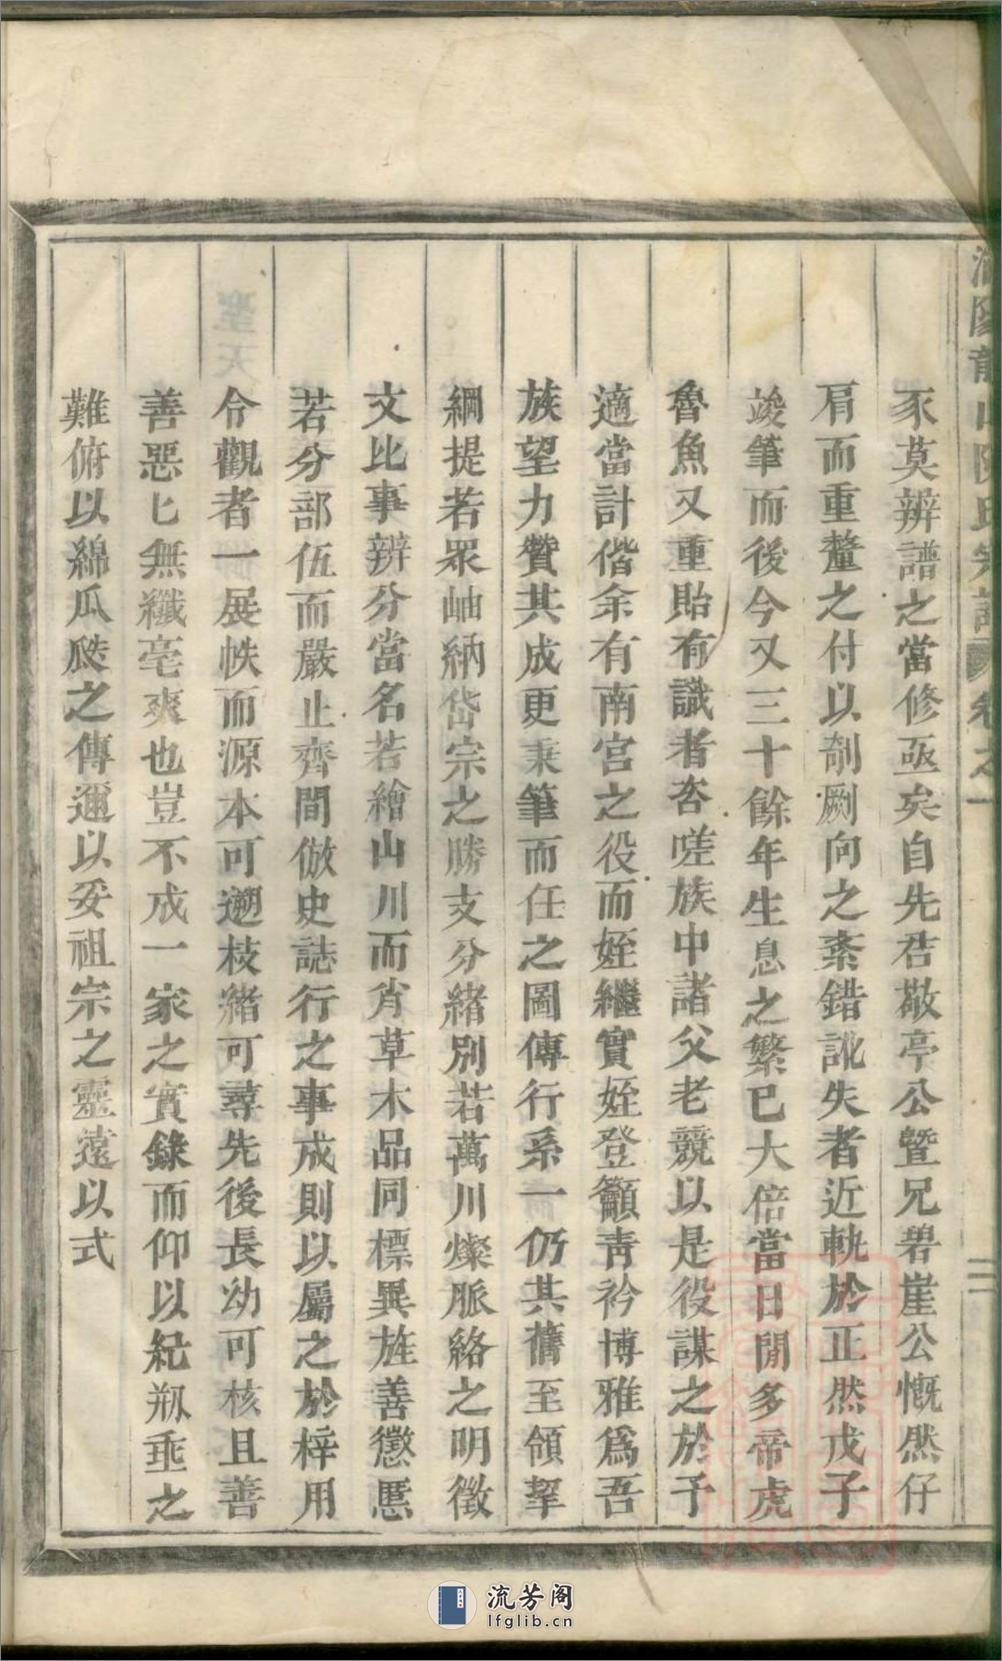 豕莫辨譜之當修亟矣自先君敬亭公暨兄碧崖公慨然仔
肩而重釐之付以剞劂向之紊錯訛失者近軌於正然戊子
竣筆而後今又三十餘年生息之繁已大倍當日閒多帝虎
魯魚又重貽有識者咨嗟族中諸父老競以是役謀之於予
適當計偕余有南宮之役而姪繼實姪登籲青衿博雅爲吾
族望力贊其成更秉筆而任之圖傳行系一仍其舊至領挈
綱提若眾岫納岱宗之勝支分緒別若萬川燦脈絡之明徵
文比事辨分當名若繪山川而肖草木品同標異旌善懲慝
若分部伍而嚴止齊間倣史誌行之事成則以屬之於梓用
令觀者一展帙而源本可遡枝緒可尋先後長幼可核且善
善惡匕無纖毫爽也豈不成一家之實錄而仰以紀瓶垂之
難俯以綿瓜瓞之傳邇以妥祖宗之靈遠以式
龍山陳氏宗譜 卷之一
二
流芳阁
lfglib.cn